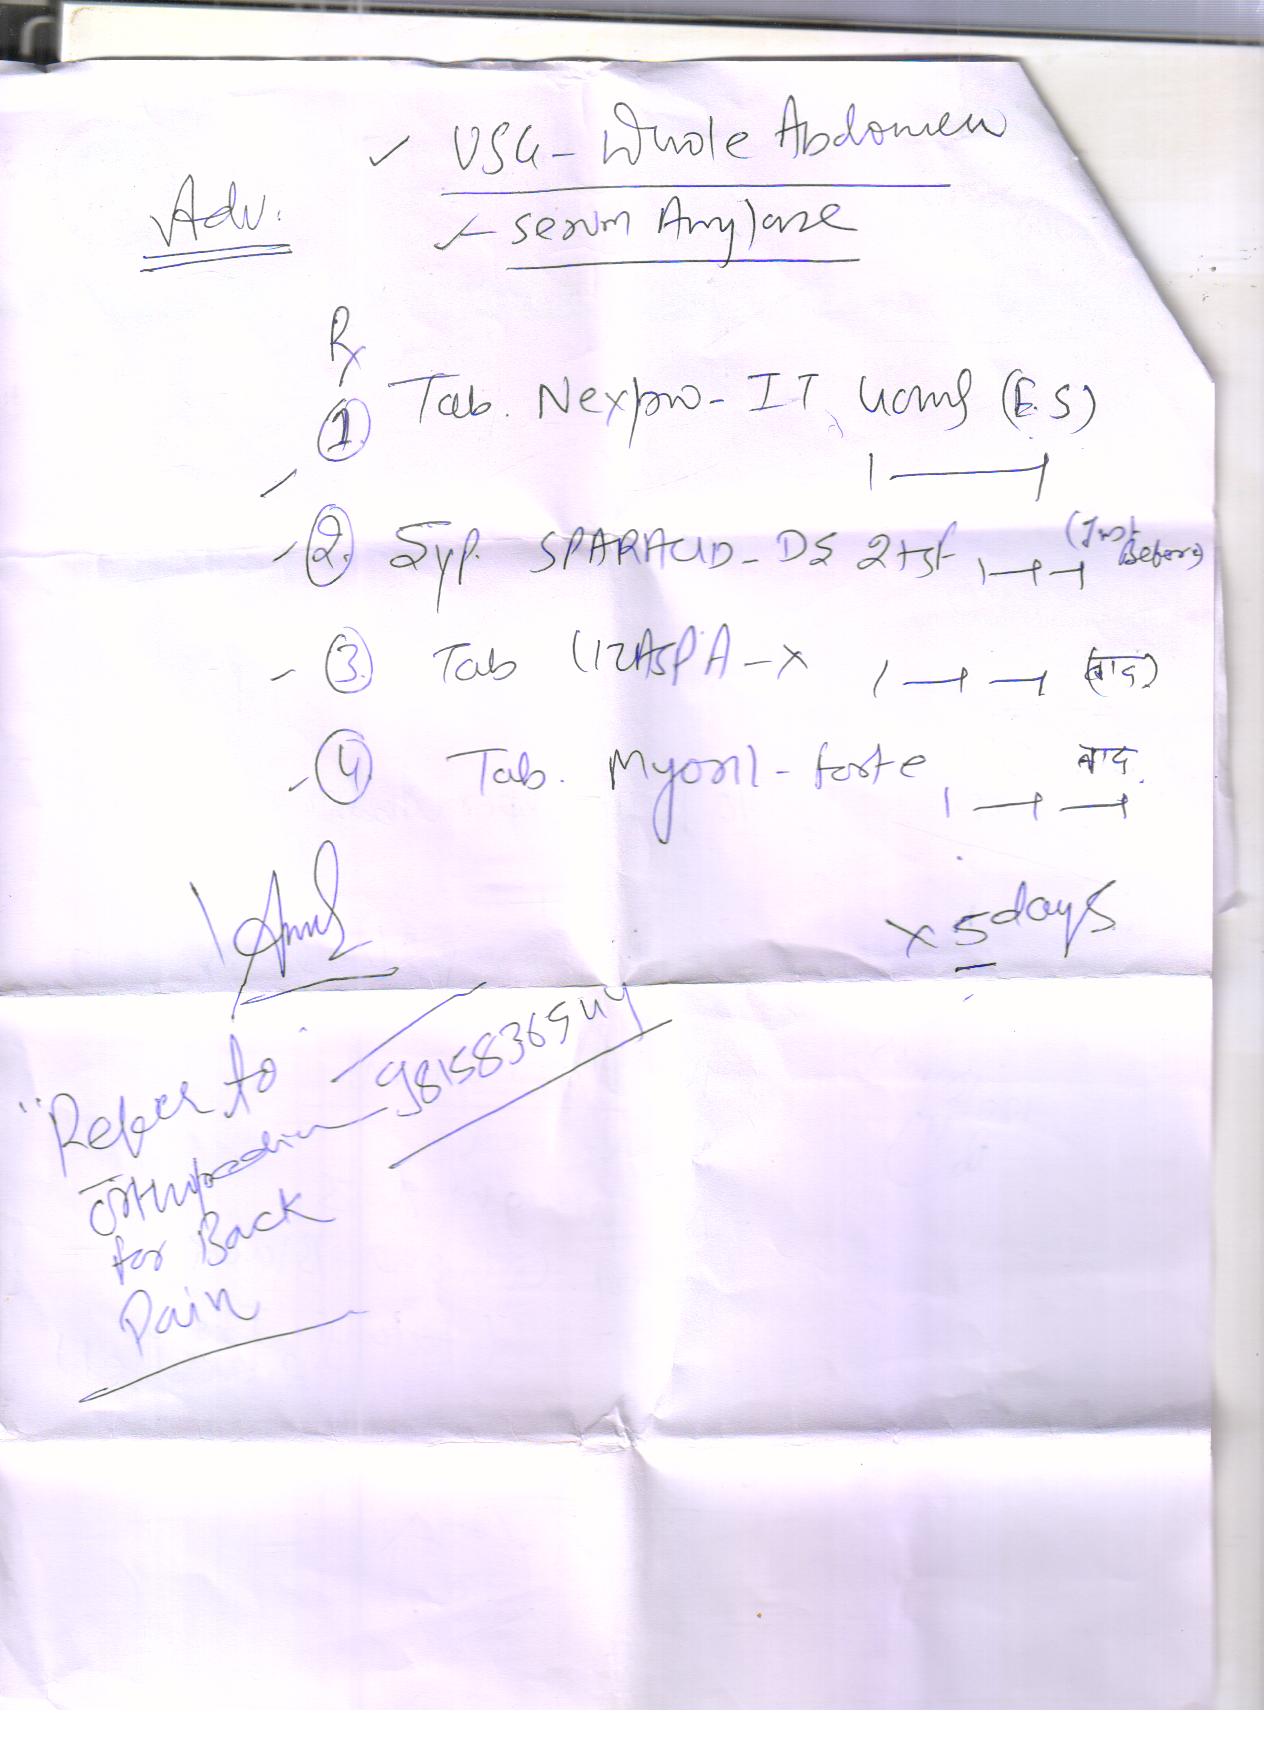 ✓ USG - Whole Abdomen
Adv.
✓ Serum Amylase
Rx
1. Tab. Nexpro - IT 40mg (E.S)
1 —— 1
2. Syp. SPARACID - DS 2tsf 1 — 1 — 1 (Just Before)
3. Tab - X 1 — 1 — 1 (बाद)
4. Tab. Myoril - forte 1 — 1 — 1 बाद
x 5 days
9815836944
"Refer to
Orthopedician
for Back
Pain